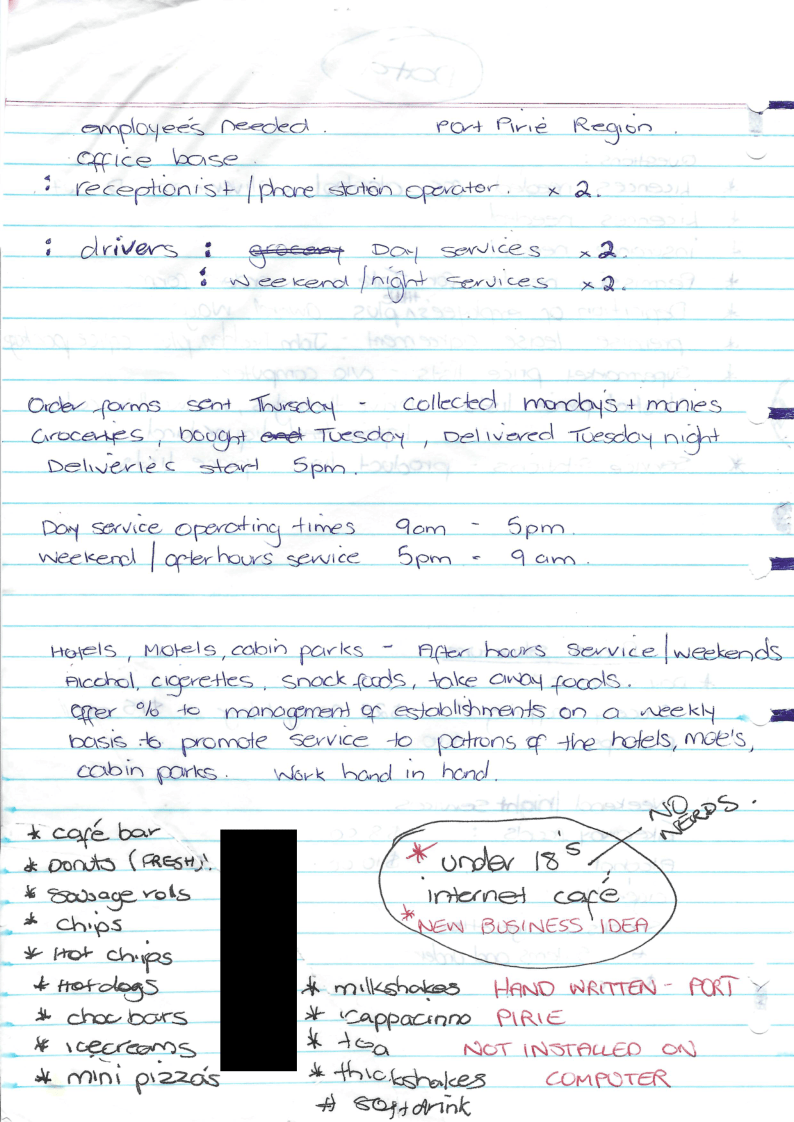 employeés needed. Port Pirié Region.
office base.
: receptionist / phone station operator. x 2.
: drivers : grocery Day services x 2.
: Weekend / night services x 2.
Order forms sent Thursday - collected monday's + monies
Groceries, bought and Tuesday, Delivered Tuesday night
Deliveries start 5pm.
Day service operating times 9am - 5pm.
Weekend / after hours service 5pm - 9 am.
Hotels, Motels, cabin parks - After hours Service / weekends
Alcohol, cigerettes, snack foods, take away foods.
offer % to management of establishments on a weekly
basis to promote service to patrons of the hotels, mote's,
cabin parks. Work hand in hand.
NO NERDS.
* café bar
* Donuts (FRESH)!
* Sausage rolls
* chips
* Hot chips
* Hotdogs
* choc bars
* icecreams
* mini pizza's
* under 18's
internet café
* NEW BUSINESS IDEA
* milkshakes HAND WRITTEN - PORT
* cappacinno PIRIE
* tea NOT INSTALLED ON
* thickshakes COMPUTER
# Softdrink